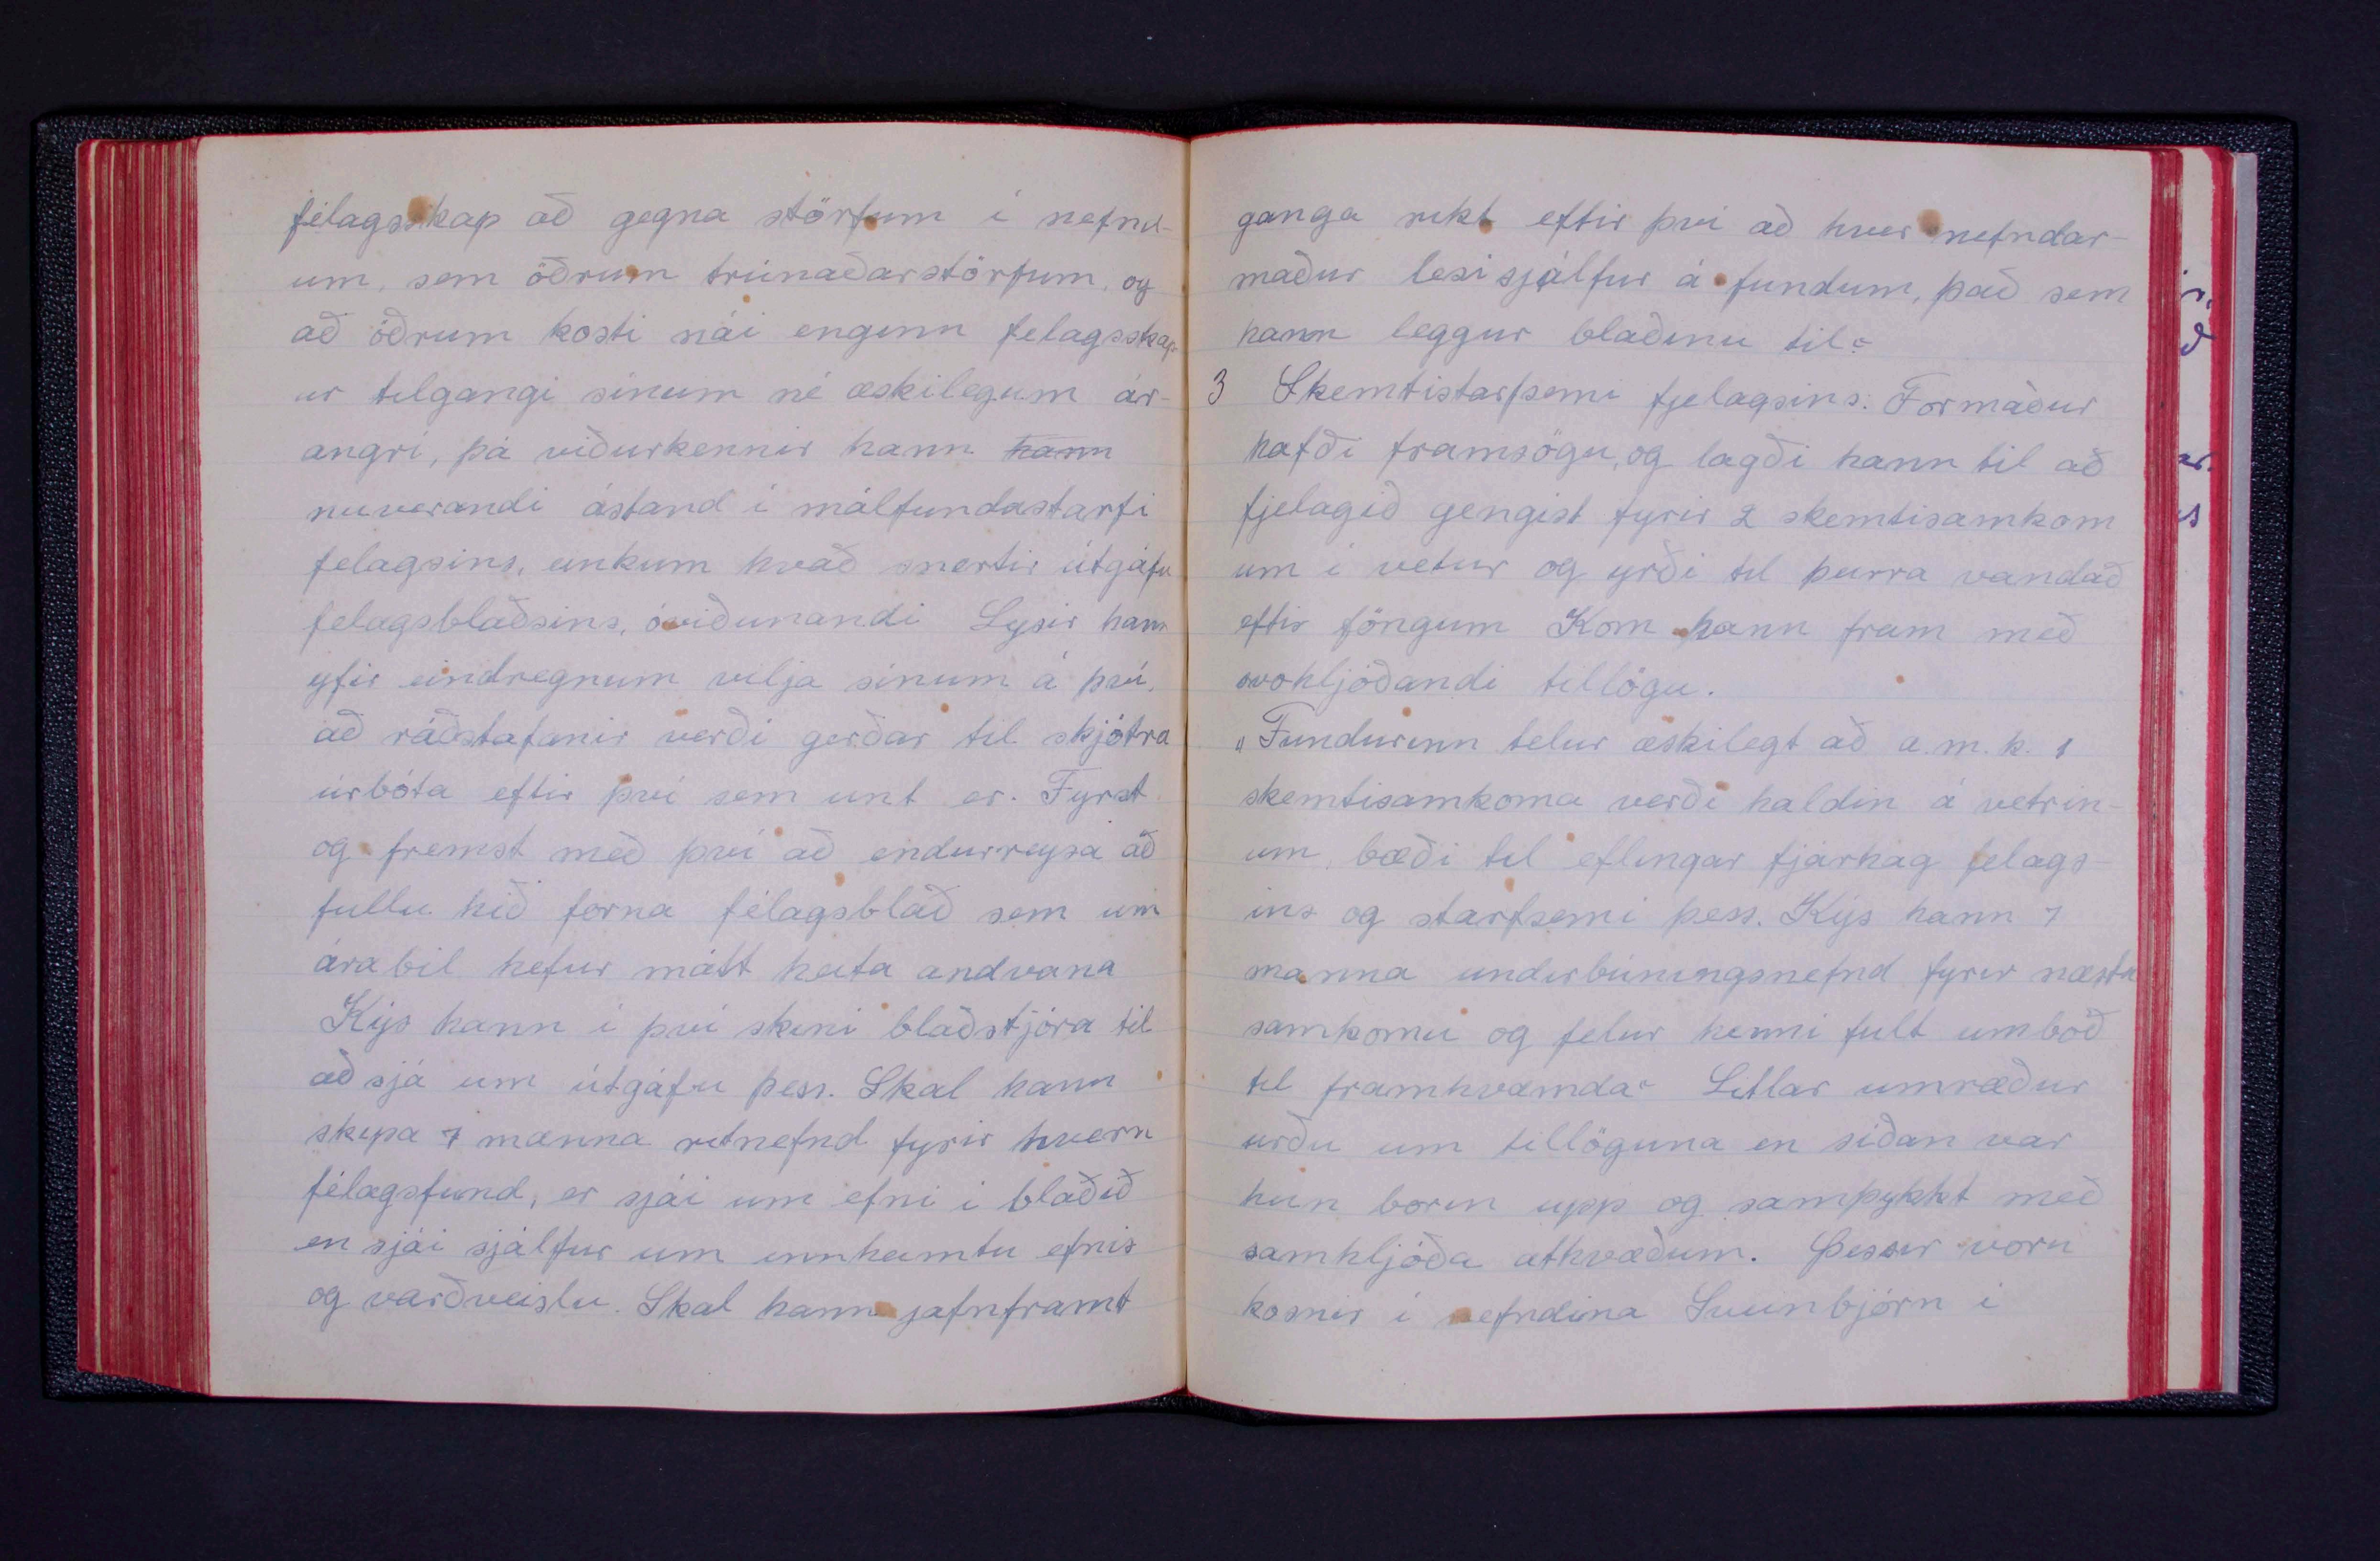 félagsskap að gegna störfum í nefnd-
um, sem öðrum trúnaðarstörfum, og
að öðrum kosti nái enginn felagsskap-
ur tilgangi sínum né æskilegum ár-
angri, þá viðurkennir hann hann
nuverandi ástand í málfundastarfi
felagsins, einkum hvað snertir útgáfu
felagsblaðsins, óviðunandi Lysir hann
yfir eindregnum vilja sínum á því,
að ráðstafanir verði gerðar til skjótra
úrbóta eftir því sem unt er. Fyrst
og fremst með því að endurreysa að
fullu hið forna félagsblað sem um
árabil hefur mátt heita andvana
Kýs hann í því skini blaðstjóra til
að sjá um útgáfu þess. Skal hann
skipa 7 manna ritnefnd fyrir hvern
félagsfund, er sjái um efni í blaðið
en sjái sjálfur um innheimtu efnis
og varðveislu. Skal hann jafnframt
ganga rikt eftir því að hver nefndar-
maður lesi sjálfur á fundum, það sem
hann leggur blaðinu til"
3 Skemtistarfsemi fjelagsins. Formaður
hafði framsögu, og lagði hann til að
fjelagið gengist fyrir 2 skemtisamkom
um í vetur og yrði til þeirra vandað
eftir föngum Kom hann fram með
svohljóðandi tillögu.
"Fundurinn telur æskilegt að a.m.k. 1
skemtisamkoma verði haldin á vetrin-
um, bæði til eflingar fjárhag felags-
ins og starfsemi þess. Kýs hann 7
manna undirbúningsnefnd fyrir næstu
samkomu og felur henni fult umboð
til framkvæmda" Litlar umræður
urðu um tillöguna en síðan var
hún borin upp og samþykkt með
samhljóða atkvæðum. Þessir voru
kosnir í nefndina Sveinbjörn í